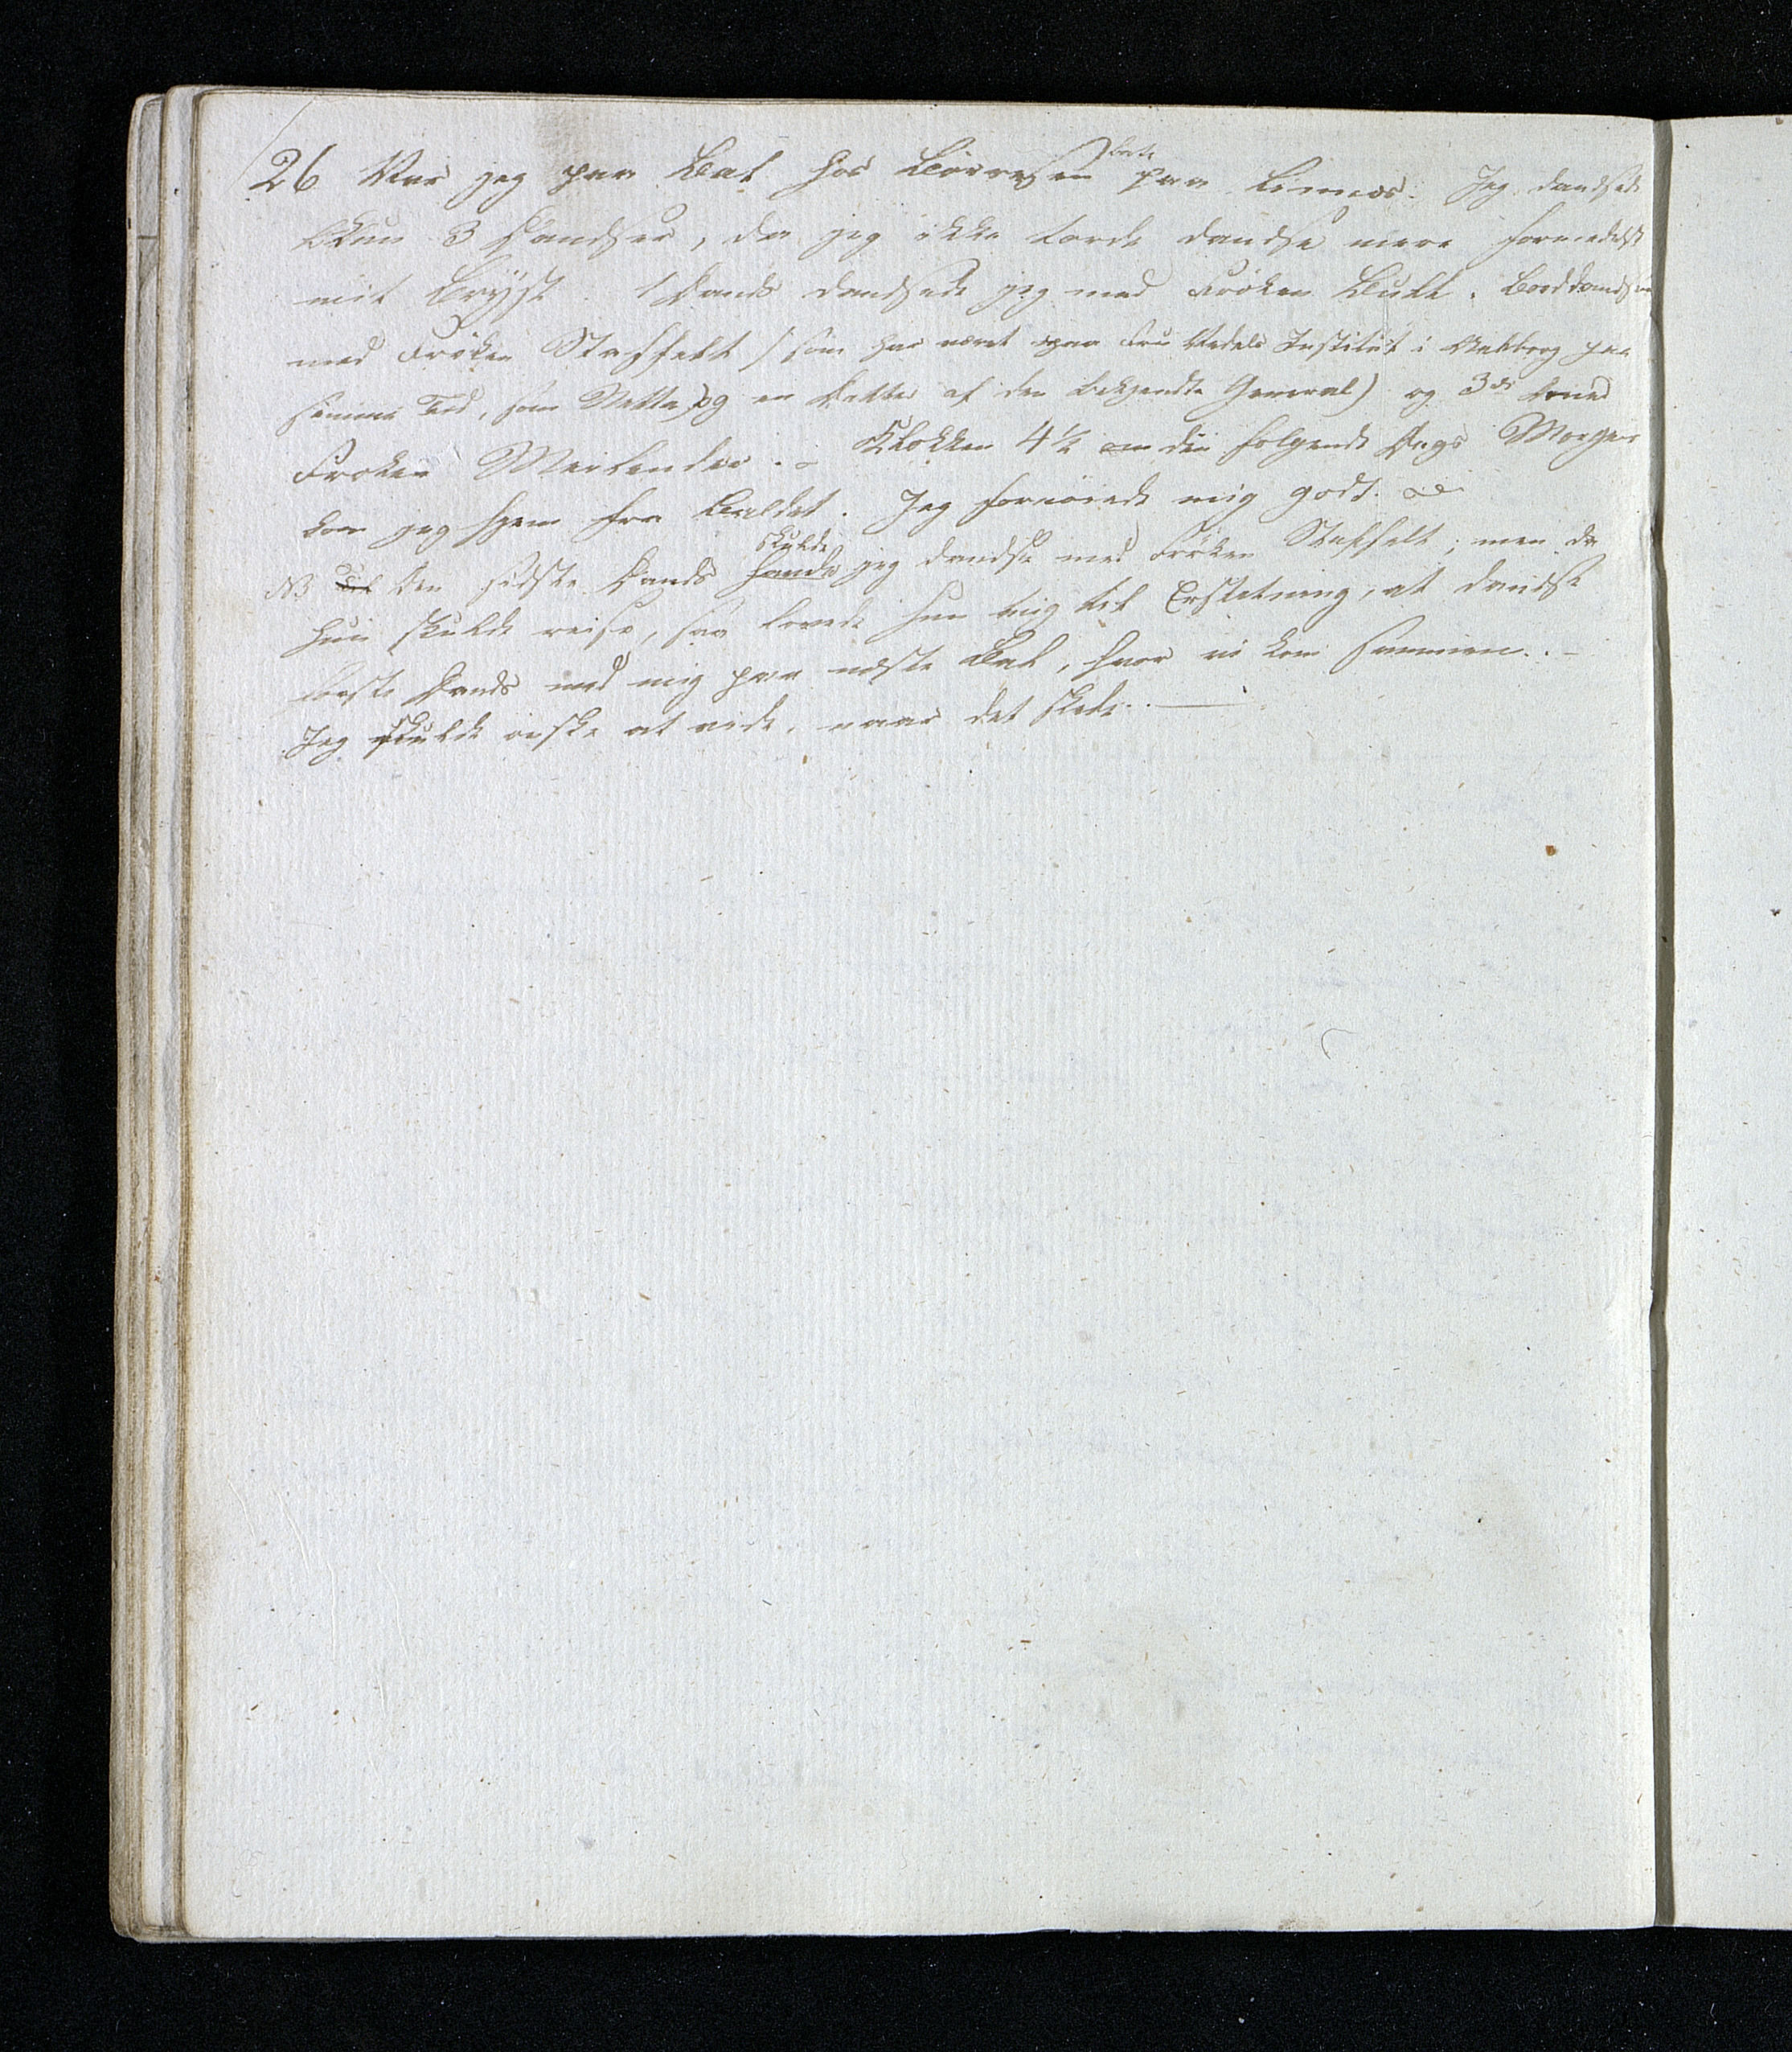 26 Var jeg paa Bal hos Börresen paa Limos. Jeg dandsede
kun 3 Dandser, da jeg ikke torde dandse mere formedelst
mit Bryst. 1 Dands dandsede jeg med Fröken Bull. Borddandsen
med Fröken Staffelt (som har været paa Fru Vedels Institut i Aalborg paa
samme Tid, som Netta, og en Datter af den bekjendte General) og 3die med
Froken Meilender. – Klokken 4½ den folgende Dags Morgen
kom jeg hjem fra Baldet. Jeg fornöiede mig godt.
skulde
NB Den sidste Dands havde jeg dandse med Fröken Staffelt; men da
hun skulde reise, saa lovede hun mig til Erstatning, at dandse
förste Dands med mig paa næste Bal, hvor vi kom sammen. –
Jeg skulde önske at vide, naar det skede. —